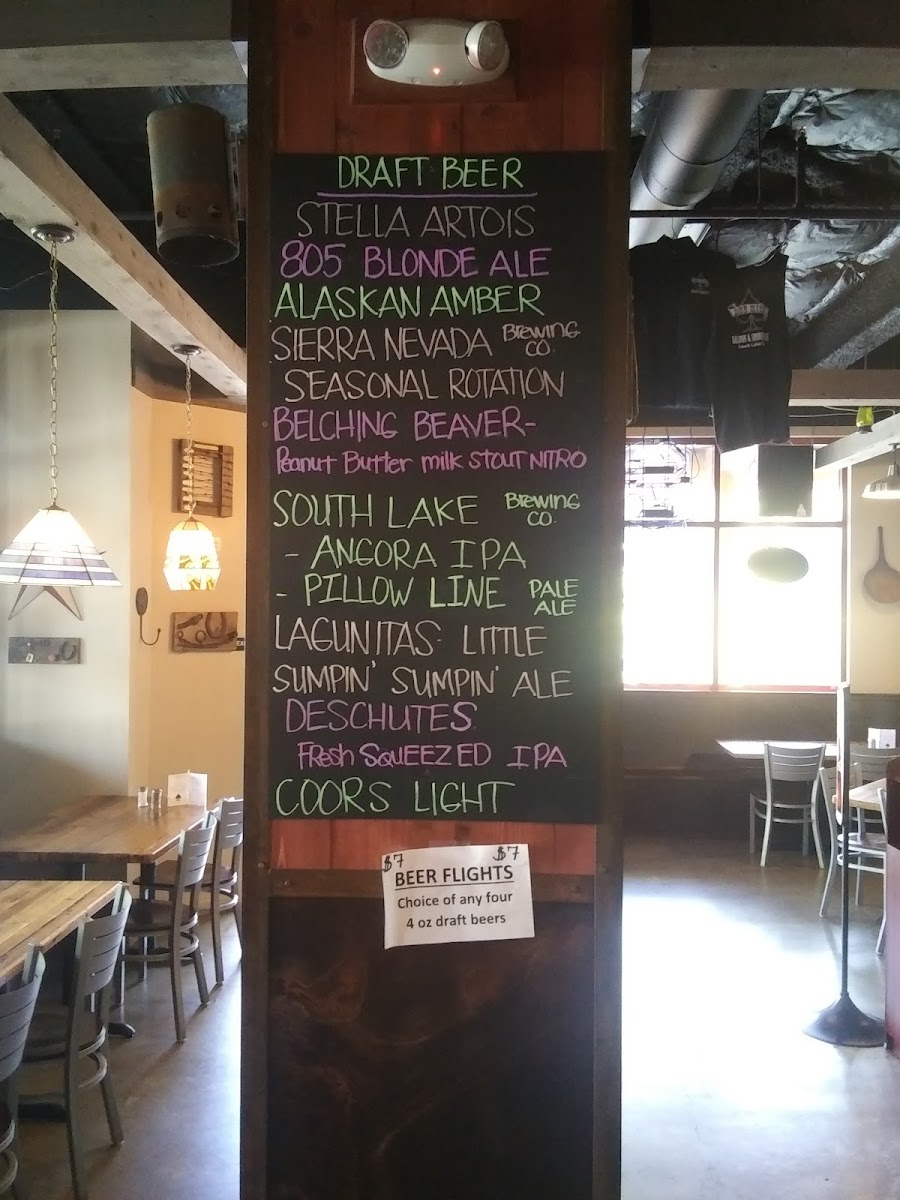 DRAFT BEER
STELLA ARTOIS
805 BLONDE ALE
ALASKAN AMBER
SIERRA NEVADA Brewing CO.
SEASONAL ROTATION
BELCHING BEAVER-
Peanut Butter milk STOUT NITRO
SOUTH LAKE Brewing CO.
- ANGORA IPA
- PILLOW LINE PALE ALE
LAGUNITAS- LITTLE
SUMPIN' SUMPIN' ALE
DESCHUTES
FRESH SQUEEZED IPA
COORS LIGHT
$7 $7
BEER FLIGHTS
Choice of any four
4 oz draft beers